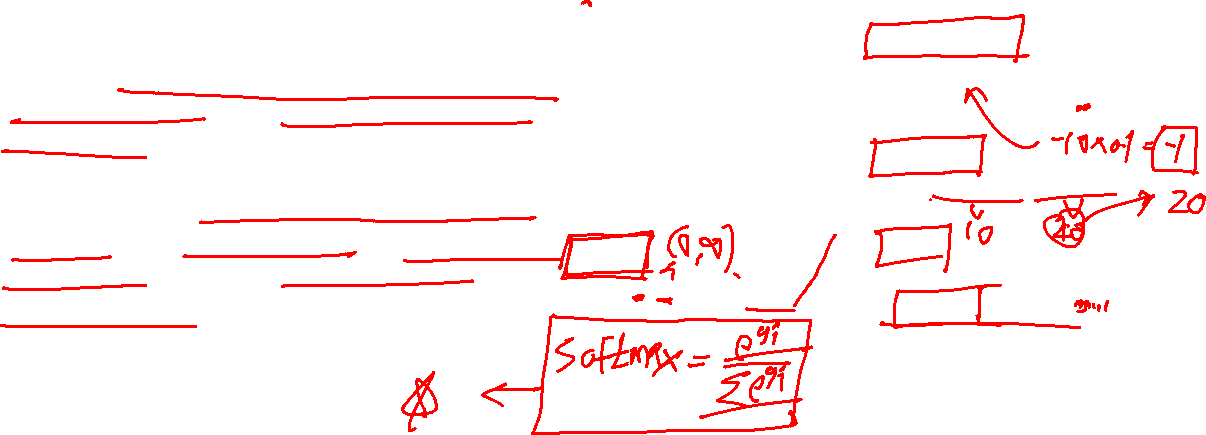 -10×0.1 = -1
10 20 → 20
(0,∞)
Softmax = e^yi / Σe^yi